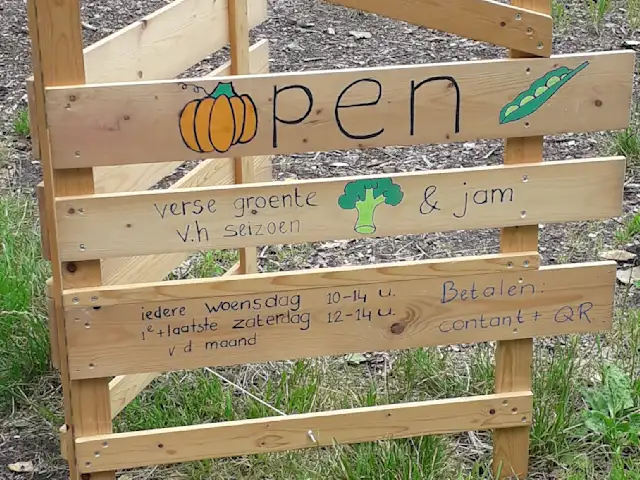 Open
verse groente & jam
v.h seizoen
iedere woensdag 10-14 u.
1e + laatste zaterdag 12-14 u.
v d maand
Betalen:
contant + QR